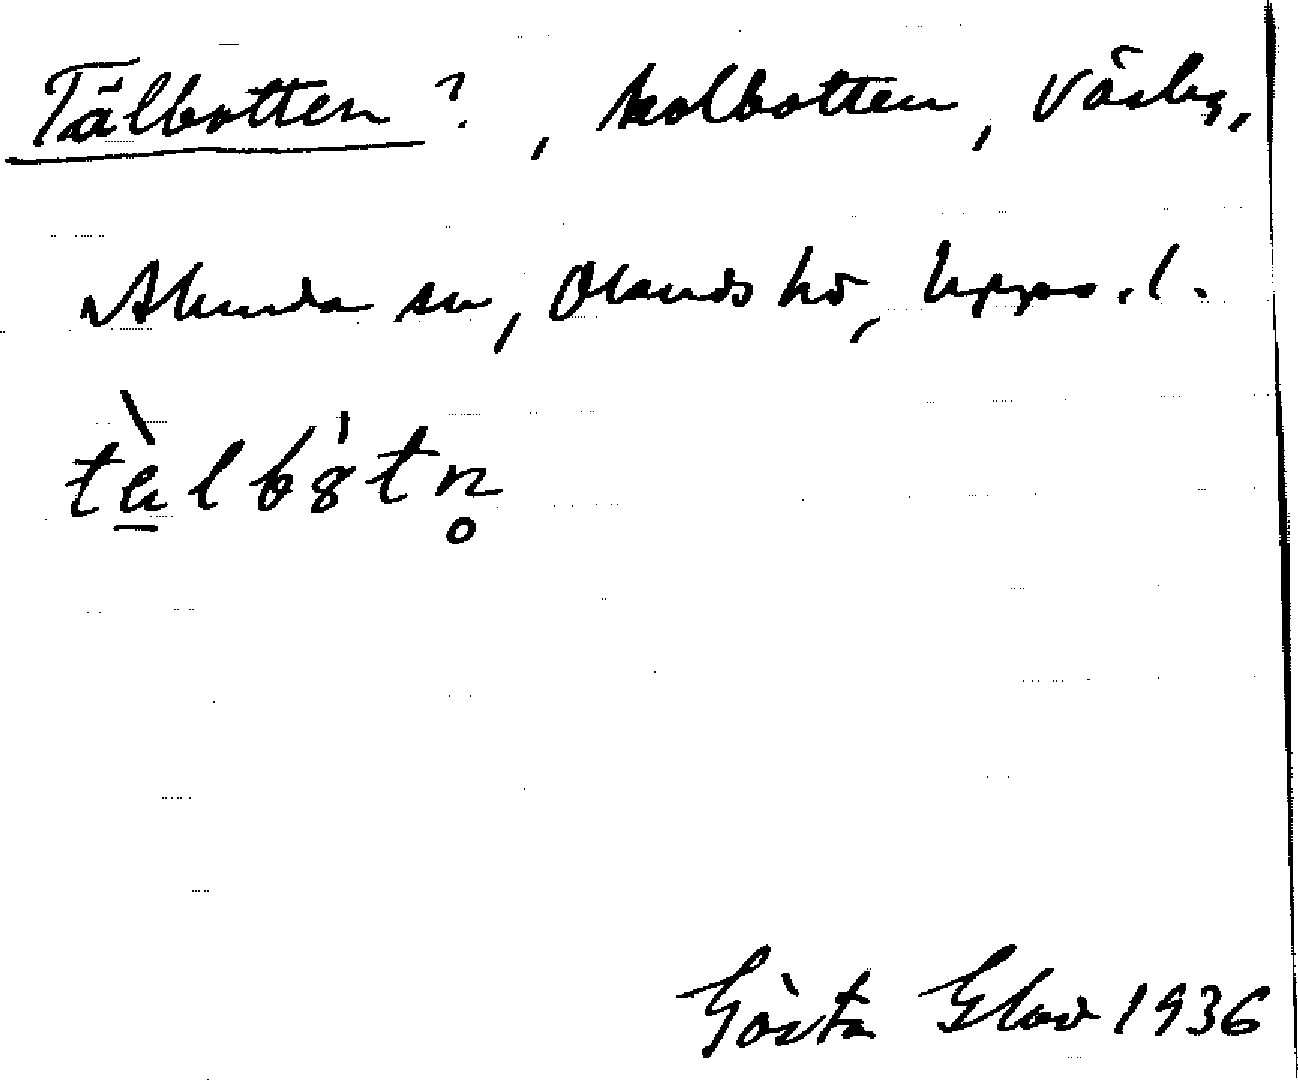 Tälbotten ?, kolbotten, Väsby,
Alunda sn, Olands hd, Upps. l.
tälbòtn̥
Gösta 1936